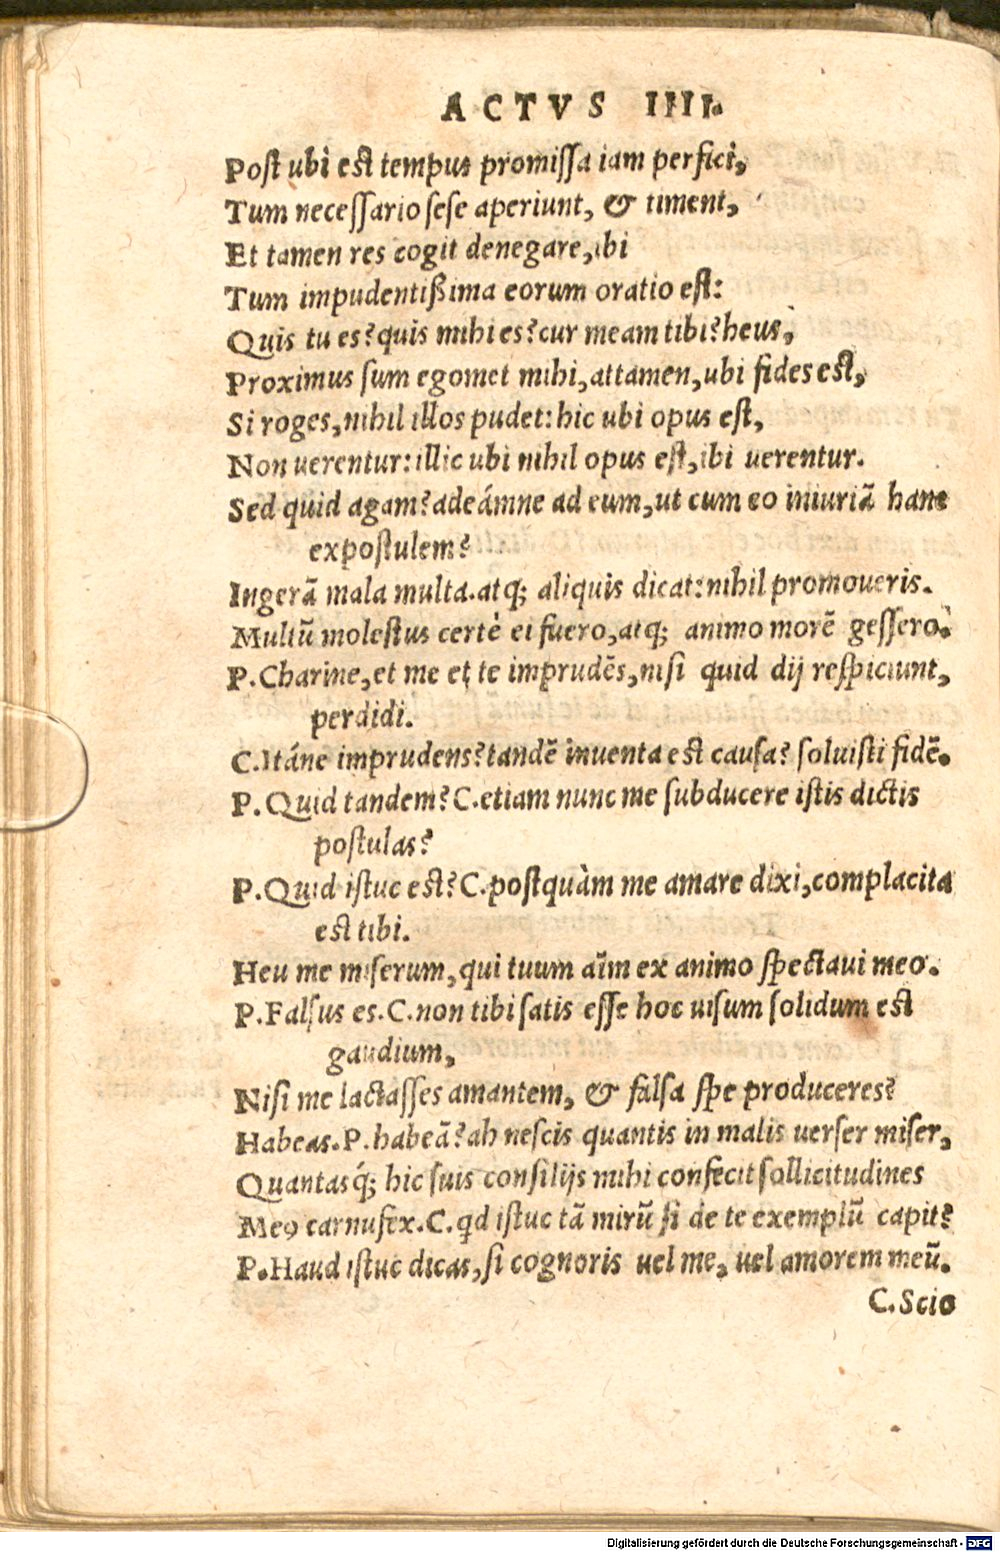 ACTVS IIII.
Post ubi est tempus promissa iam perfici,
Tum necessario sese aperiunt, & timent,
Et tamen res cogit denegare, ibi
Tum impudentißima eorum oratio est:
Quis tu es? quis mihi es? cur meam tibi? heus,
Proximus sum egomet mihi, attamen, ubi fides est,
Si roges, nihil illos pudet: hic ubi opus est,
Non uerentur: illic ubi nihil opus est, ibi uerentur.
Sed quid agam? adeámne ad eum, ut cum eo iniuriã hanc
expostulem?
Ingerã mala multa. atq; aliquis dicat: nihil promoueris.
Multũ molestus certè ei fuero, atq; animo morẽ gessero.
P. Charine, et me et te imprudẽs, nisi quid dij respiciunt,
perdidi.
C. Itáne imprudens? tandẽ inuenta est causa? soluisti fidẽ.
P. Quid tandem? C. etiam nunc me subducere istis dictis
postulas?
P. Quid istuc est? C. postquàm me amare dixi, complacita
est tibi.
Heu me miserum, qui tuum aĩm ex animo spectaui meo.
P. Falsus es. C. non tibi satis esse hoc uisum solidum est
gaudium,
Nisi me lactasses amantem, & falsa spe produceres?
Habeas. P. habeã? ah nescis quantis in malis uerser miser,
Quantasq́; hic suis consilijs mihi confecit sollicitudines
Meꝰ carnufex. C. qd istuc tã mirũ si de te exemplũ capit?
P. Haud istuc dicas, si cognoris uel me, uel amorem meũ.
C. Scio
Digitalisierung gefördert durch die Deutsche Forschungsgemeinschaft - DFG